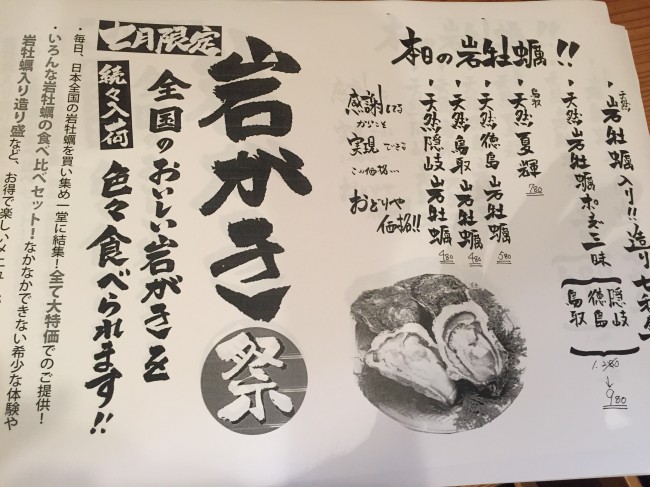 本日の岩牡蠣!!
・天然岩牡蠣入り!!造り
・天然岩牡蠣ポン酢三昧
隠岐
徳島
鳥取
1.280
↓
980
・鳥取
天然夏輝
780
・天然徳島岩牡蠣
580
・天然鳥取岩牡蠣
480
・天然隠岐岩牡蠣
480
感謝してる
からこそ
実現できる
この価格…
おどりや
価格!!
岩がき祭
七月限定
続々入荷
全国のおいしい岩がきを
色々食べられます!!
・毎日、日本全国の岩牡蠣を買い集め一堂に結集!全て大特価でのご提供!
・いろんな岩牡蠣の食べ比べセット!なかなかできない希少な体験や
岩牡蠣入り造り盛など、お得で楽しい